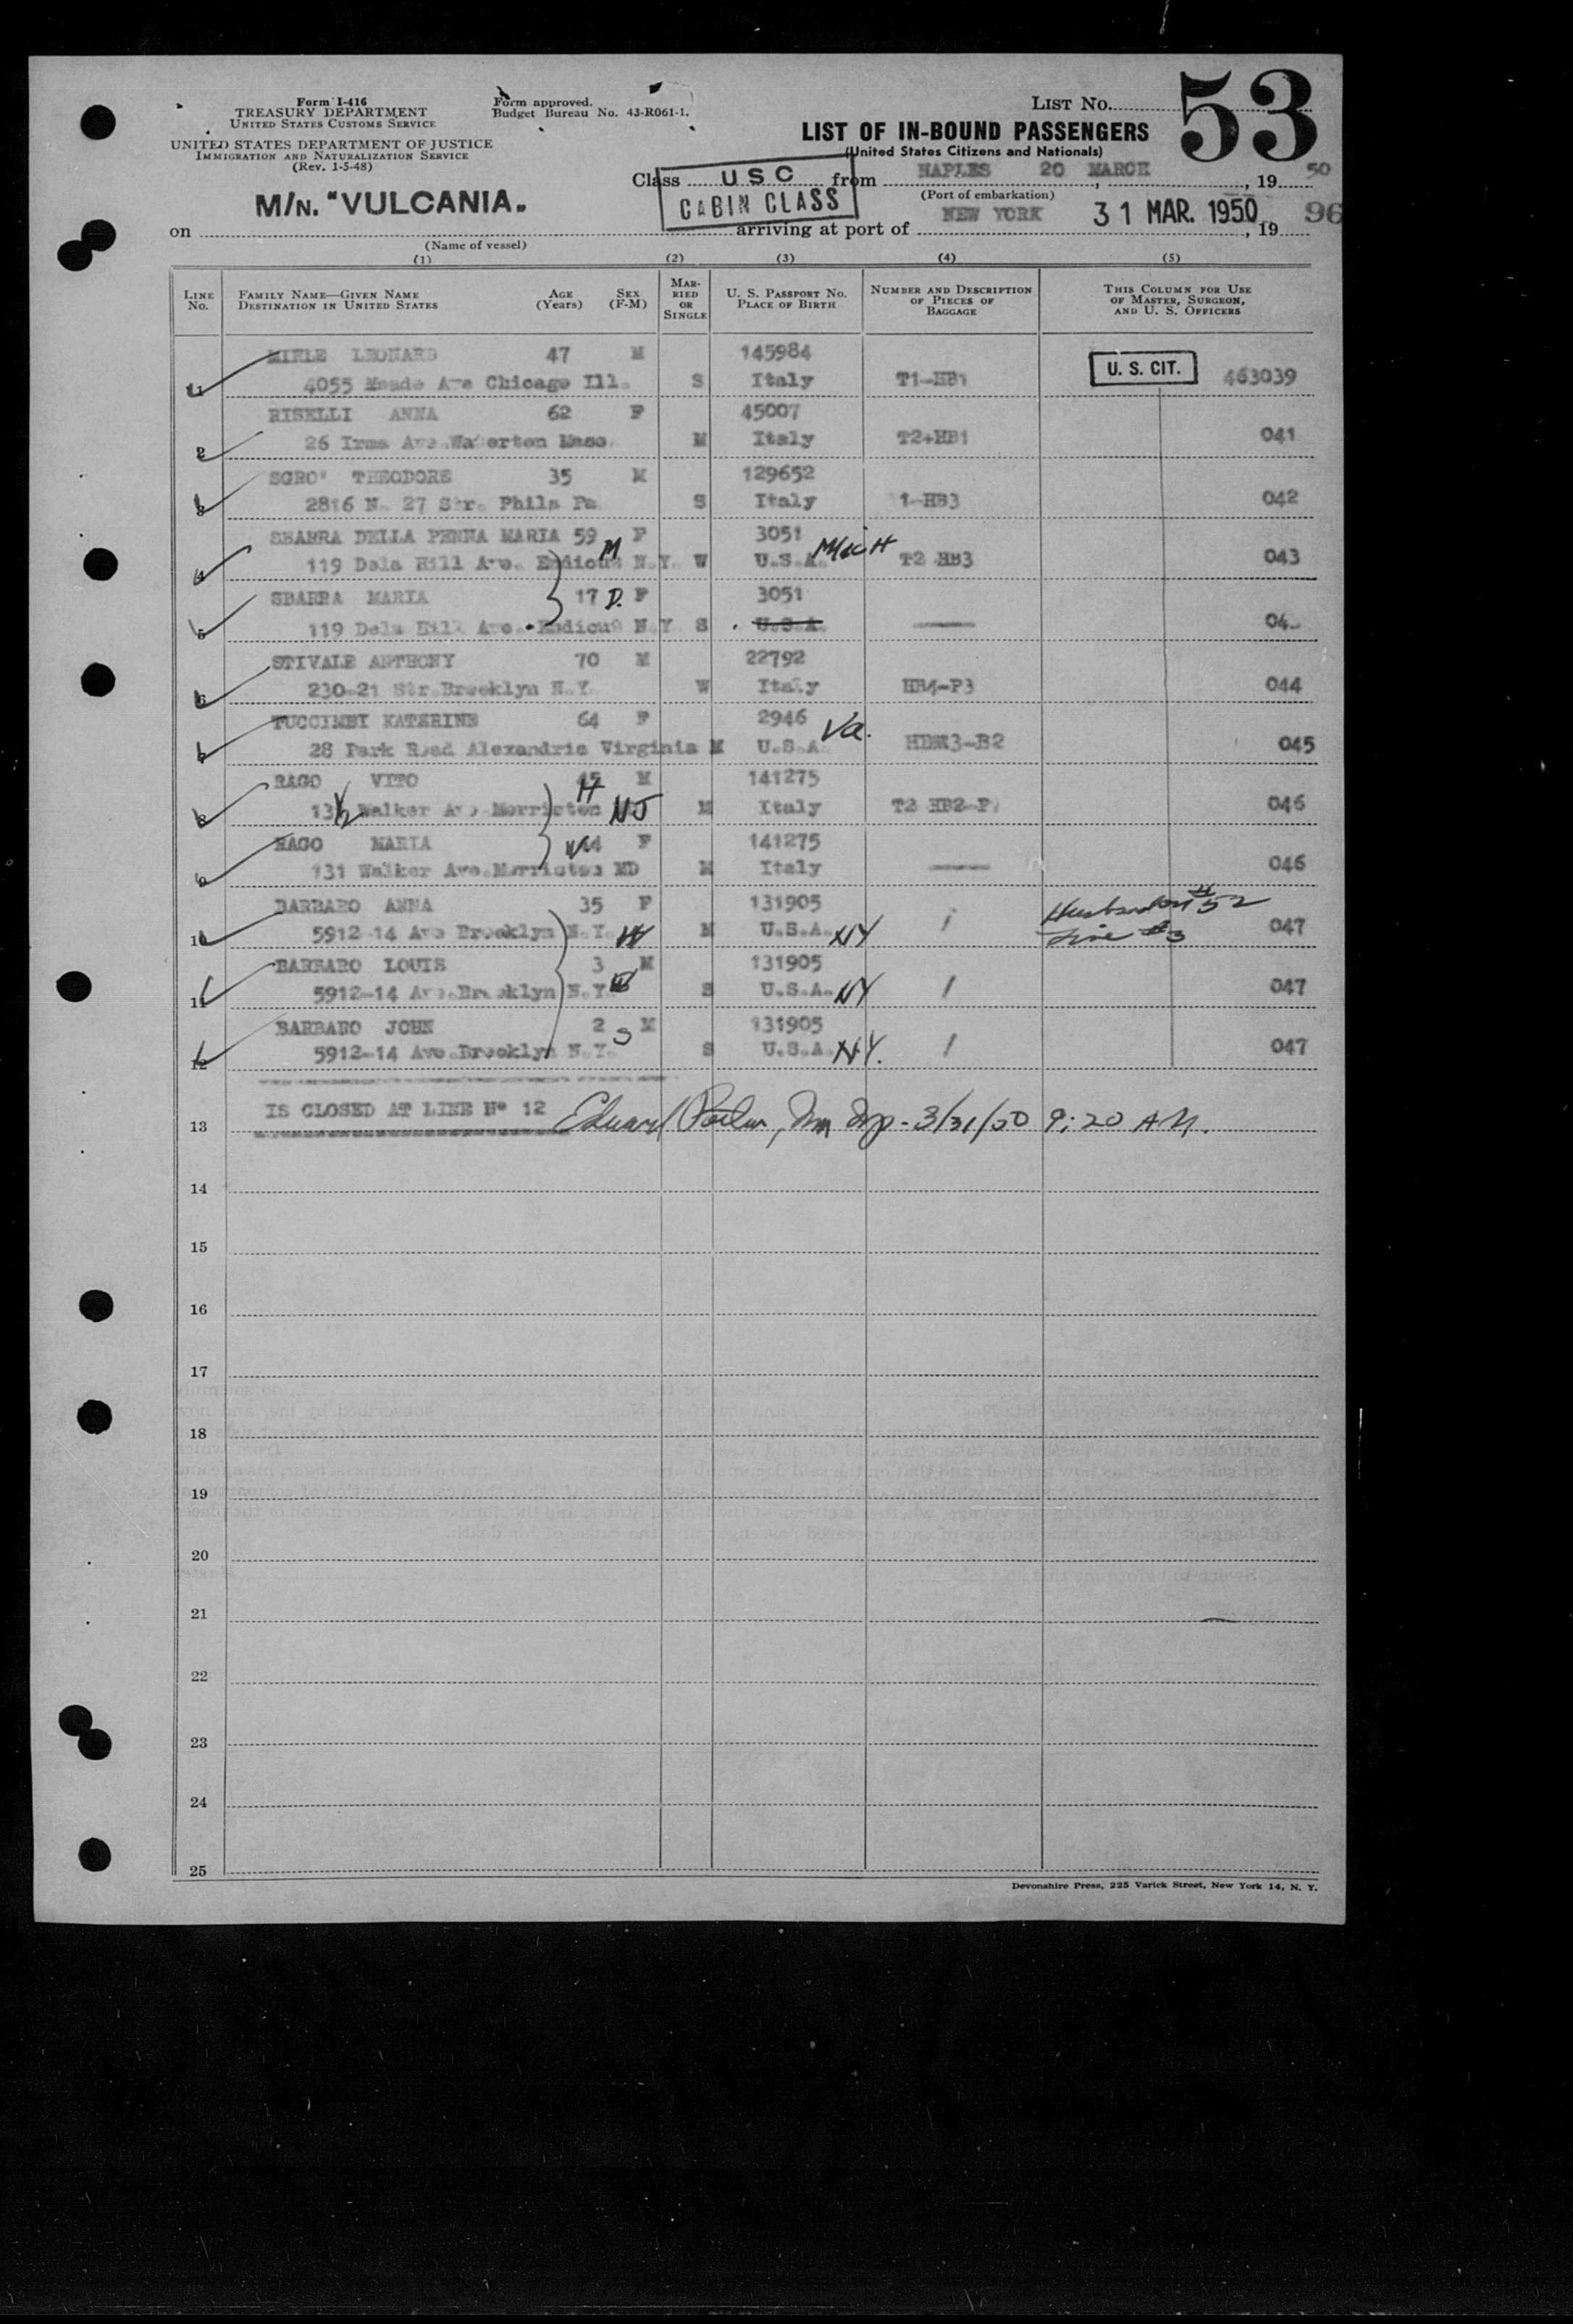 Form I-416
TREASURY DEPARTMENT
UNITED STATES CUSTOMS SERVICE
UNITED STATES DEPARTMENT OF JUSTICE
IMMIGRATION AND NATURALIZATION SERVICE
(Rev. 1-5-48)
Form approved.
Budget Bureau No. 43-R061-1.
LIST NO. 53
LIST OF IN-BOUND PASSENGERS
(United States Citizens and Nationals)
Class USC from NAPLES 20 MARCH, 19 50
CABIN CLASS
(Port of embarkation)
M/N. "VULCANIA"
on arriving at port of NEW YORK 31 MAR. 1950, 19 96
(Name of vessel)
(1) (2) (3) (4) (5)
LINE NO. FAMILY NAME—GIVEN NAME DESTINATION IN UNITED STATES AGE (Years) SEX (F-M) MARRIED OR SINGLE U. S. PASSPORT NO. PLACE OF BIRTH NUMBER AND DESCRIPTION OF PIECES OF BAGGAGE THIS COLUMN FOR USE OF MASTER, SURGEON, AND U. S. OFFICERS
MIELE LEONARD 47 M 145984
1 4055 Meade Ave Chicago Ill. S Italy T1-HB1 U. S. CIT. 463039
RISELLI ANNA 62 F 45007
2 26 Irma Ave. Waterton Mass. M Italy T2+HB1 041
SGRO' THEODORE 35 M 129652
3 2816 N. 27 Str. Phila Pa S Italy 1-HB3 042
SBARRA DELLA PENNA MARIA 59 F 3051
4 119 Dela Hill Ave. M N.Y. W U.S.A. MICH T2 HB3 043
SBARRA MARIA 17 D. F 3051
5 119 Dela Hill Ave. N.Y S U.S.A. 04
STIVALE ANTHONY 70 M 22792
6 230-21 Str. Brooklyn N.Y. W Italy HB4-P3 044
TUCCIMEI KATERINE 64 F 2946
7 28 Park Road Alexandria Virginia M U.S.A. Va. 045
RAGO VITO 45 H M 141275
8 13½ Walker Ave Morriston NJ M Italy T2 HB2-P 046
RAGO MARIA 44 F 141275
9 131 Walker Ave. Morriston MD M Italy 046
BARBARO ANNA 35 F 131905 Husband on # 52
10 5912-14 Ave Brooklyn N.Y. W M U.S.A. NY 1 Line #3 047
BARBARO LOUIS 3 M 131905
11 5912-14 Ave. Brooklyn N.Y. S U.S.A. NY 1 047
BARBARO JOHN 2 S M 131905
12 5912-14 Ave. Brooklyn N.Y. S U.S.A. NY. 1 047
13 IS CLOSED AT LINE Nº 12 Edward 3/31/50 9:20 AM.
14
15
16
17
18
19
20
21
22
23
24
25
Devonshire Press, 225 Varick Street, New York 14, N. Y.